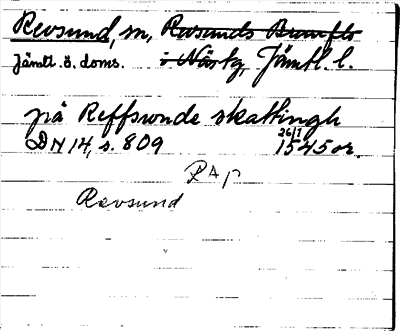 Revsund, sn, Revsunds Brunflo
Jämtl. ö. doms. i Näskg, Jämtl. l.
på Reffswnde skattingh
DN 14, s. 809 26/1 1545 or.
RAp
Revsund